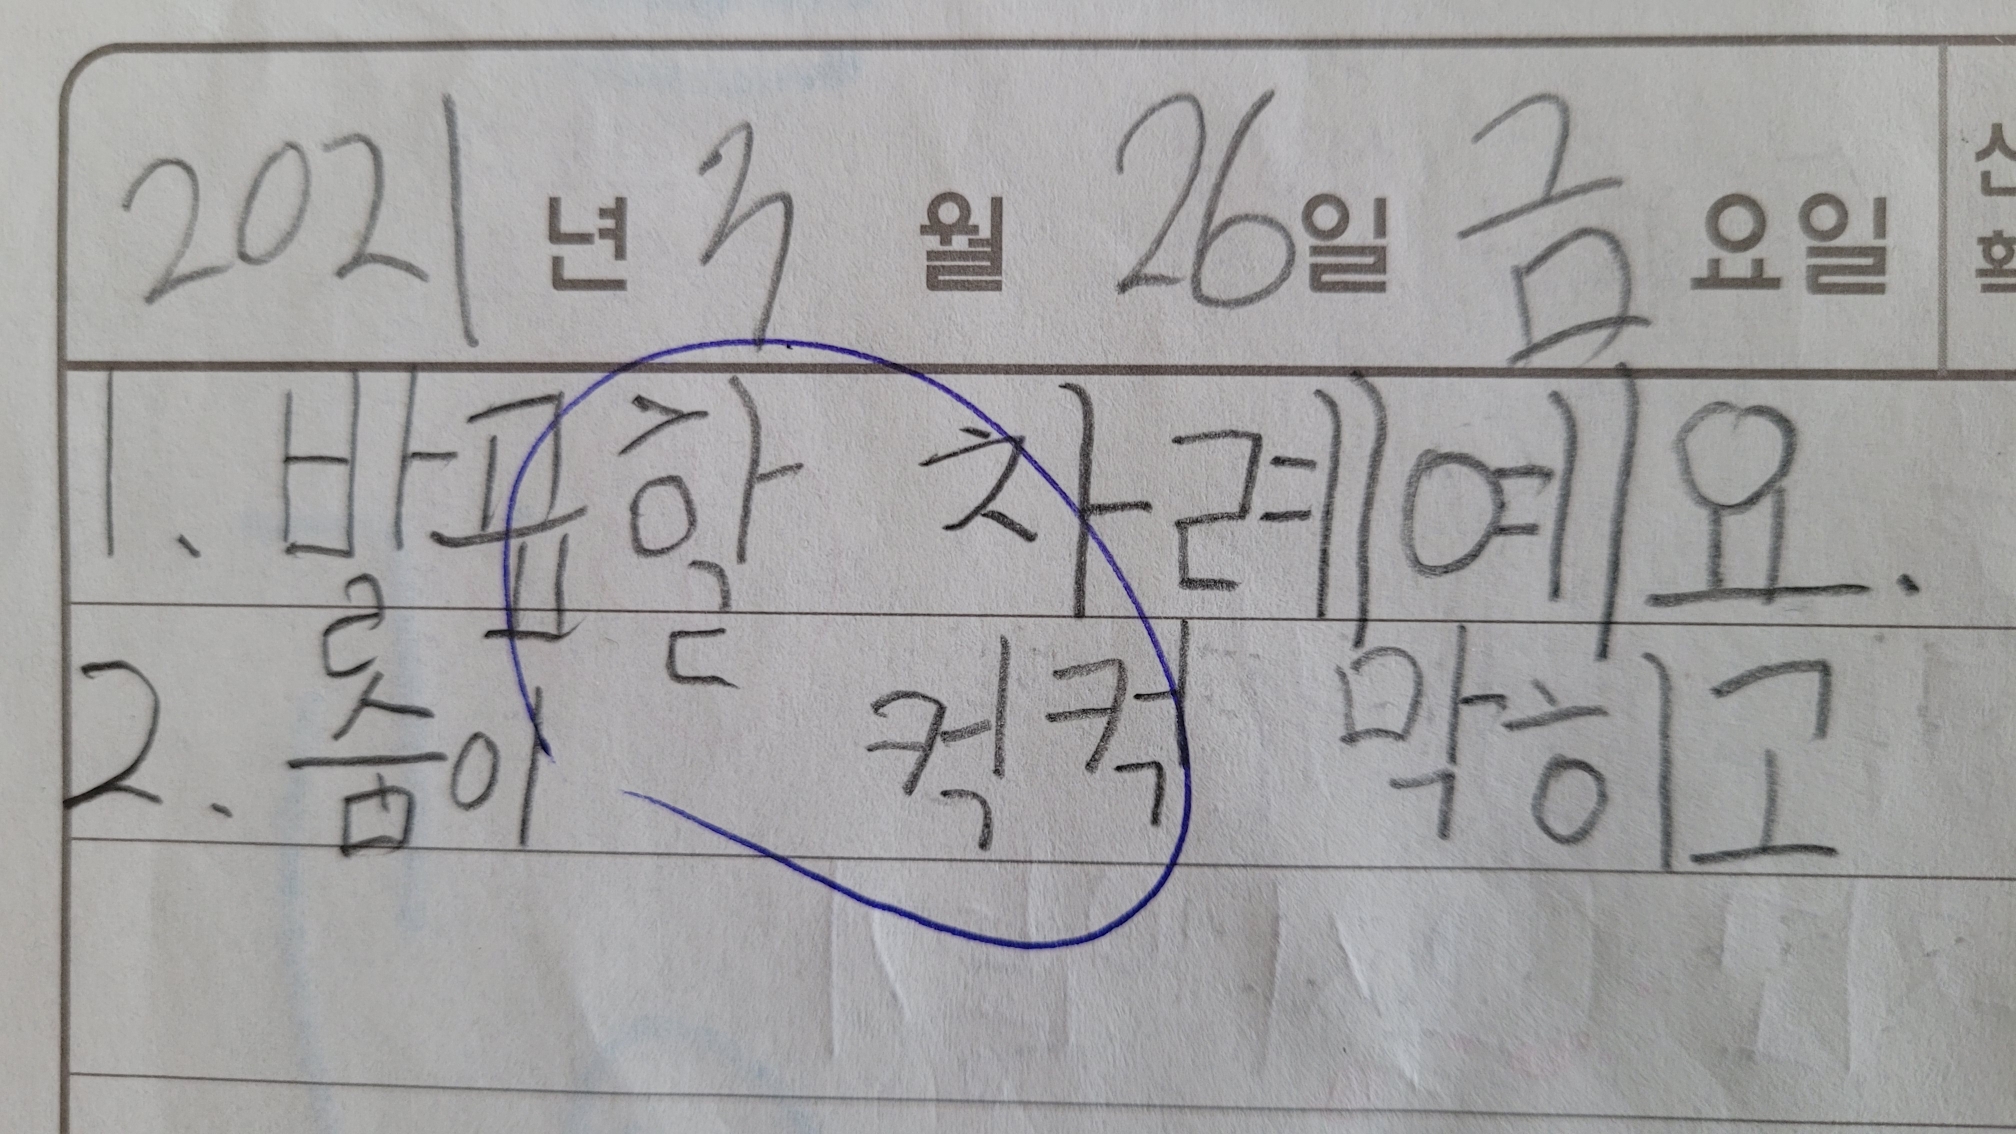 2021년 3월 26일 금요일
1. 발표할 차례예요.
2. 숨이 컥컥 막히고